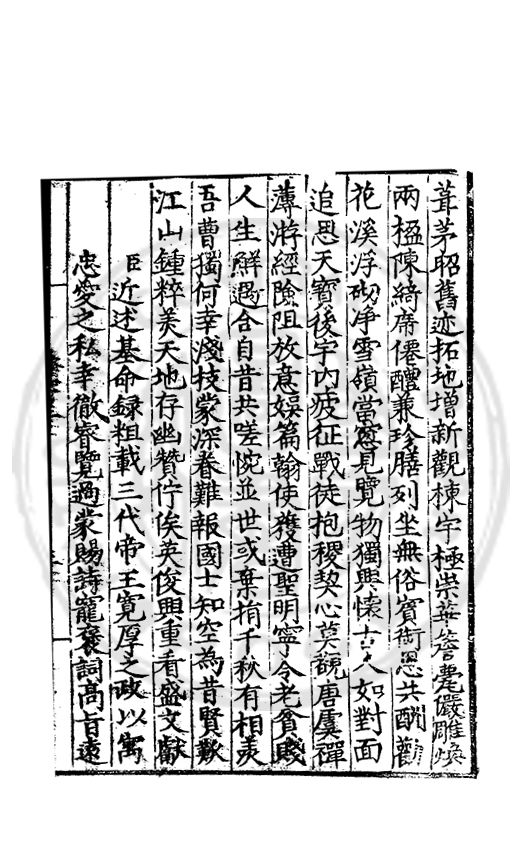 葺茅昭舊迹拓地增新觀棟宇極崇華簷甍儼雕煥
兩楹陳綺席僊醴兼珍膳列坐無俗賓銜恩共酬勸
花溪浮砌淨雪嶺當窓見覽物獨興懷古人如對面
追思天寶後宇内疲征戰徒抱稷契心莫覩唐虞禪
薄游經險阻放意娱篇翰使獲遭聖明寧令老貧賤
人生鮮遇合自昔共嗟惋並世或棄捐千秋有相羡
吾曹獨何幸淺技蒙深眷難報國士知空為昔賢歎
江山鍾粹美天地存幽贊佇俟英俊興重看盛文獻
臣近述基命録粗載三代帝王寬厚之政以寓
忠愛之私幸徹睿覽過蒙賜詩寵褒詞高旨遠